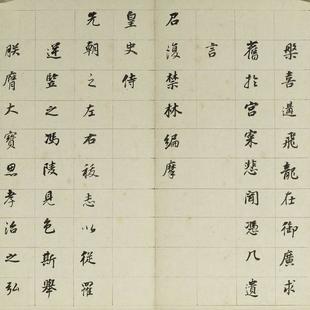 槃喜遇飛龍在御廣求
舊於宫寀悲聞憑几遺
言
召復禁林編摩
皇史侍
先朝之左右被志以從羅
逆監之馮陵見色斯舉
朕膺大寶思孝治之弘